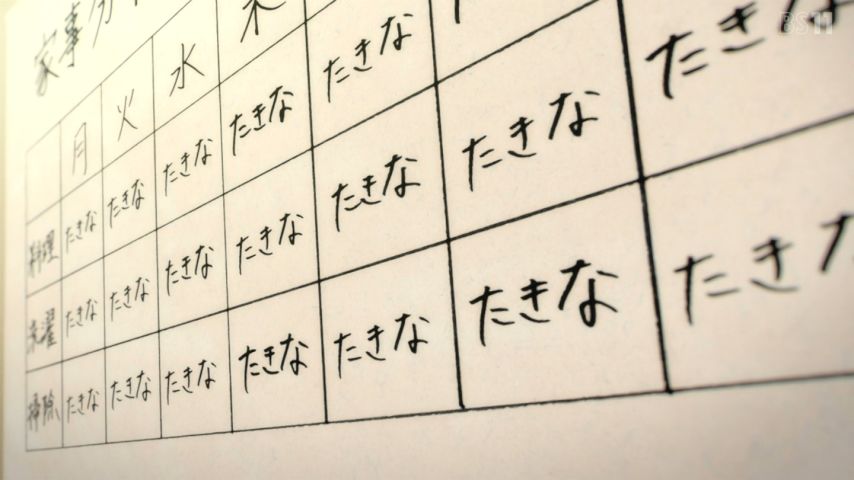 家事分
月 火 水 木
料理 たきな たきな たきな たきな たきな たきな たきな
洗濯 たきな たきな たきな たきな たきな たきな たきな
掃除 たきな たきな たきな たきな たきな たきな たき
BS11